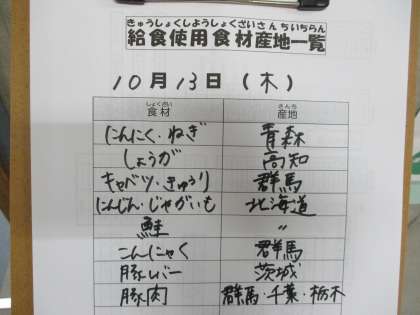 きゅうしょくしようしょくざいさんちいちらん
給食使用食材産地一覧
10月13日(木)
しょくざい さんち
食材 産地
にんにく・ねぎ 青森
しょうが 高知
キャベツ・きゅうり 群馬
にんじん・じゃがいも 北海道
鮭 〃
こんにゃく 群馬
豚レバー 茨城
豚肉 群馬・千葉・栃木